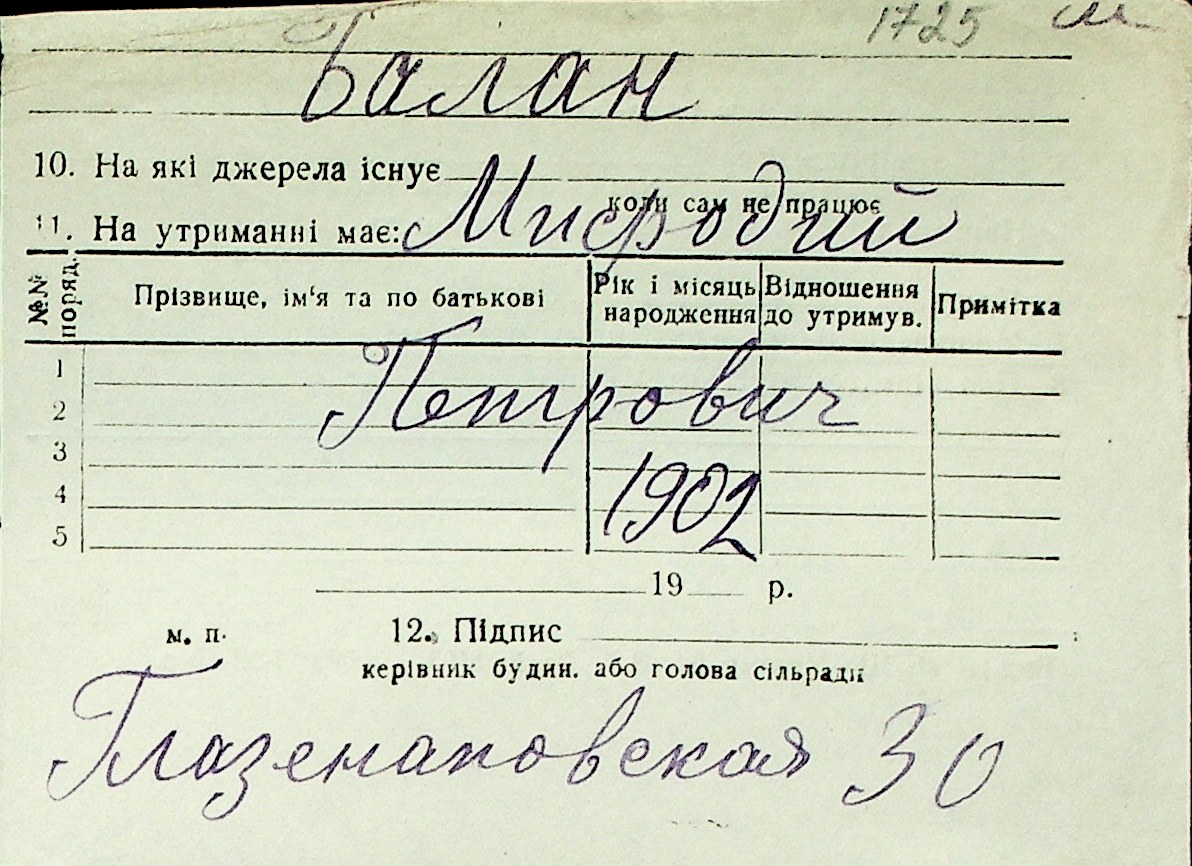 1725
Балан
10. На які джерела існує
коли сам не працює
11. На утриманні має:
Мифодий
№№ поряд.
Прізвище, ім‘я та по батькові
Рік і місяць народження
Відношення до утримув.
Примітка
1
Петрович
2
3
4
1902
5
19 р.
м. п.
12. Підпис
керівник будин. або голова сільради
Глазенаповская 30